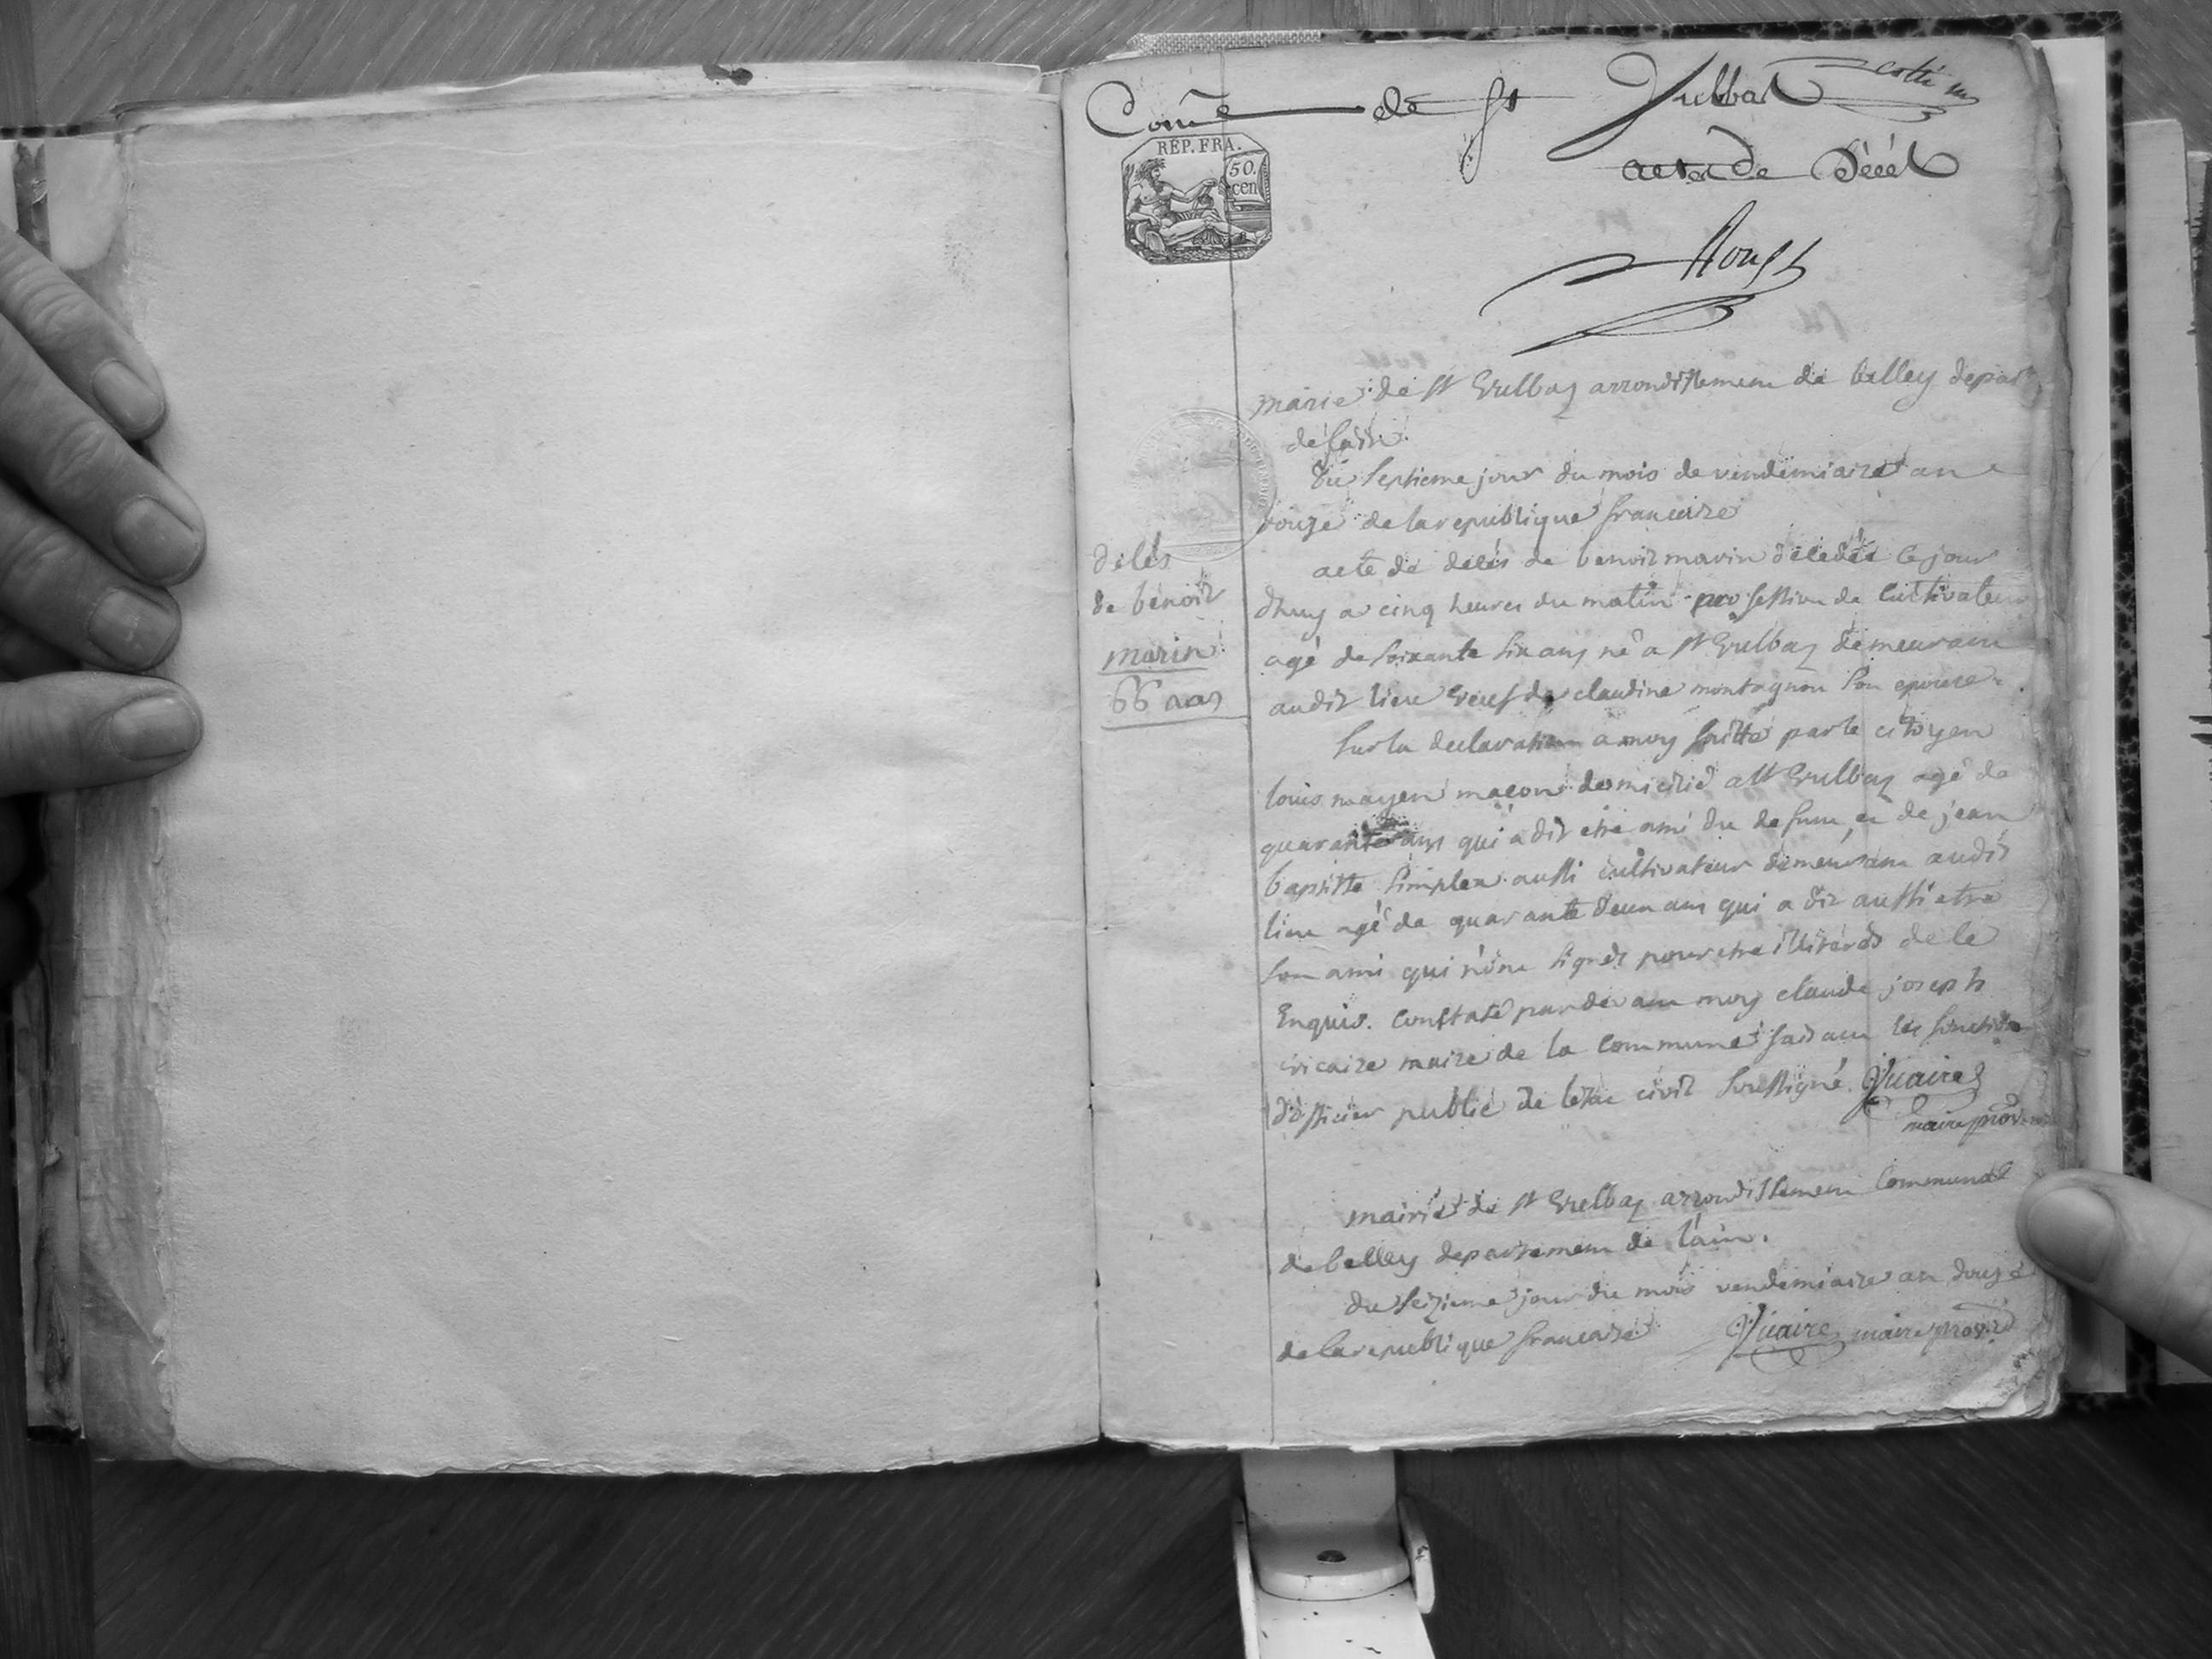 Com̃e de St Vulbas
acte de Décét
RÉP. FRA.
50. cen
marie de st Vulbas arrondissement de belley depart
de lain
Du septieme jour du mois de vendemiaire an
douze de la republique francaise
decés
de benoit
marin
66 ans
acte de decés de benoit marin décédé ce jour
dhuy a cinq heures du matin profession de cultivateur
agé de soixante six ans né a st Vulbas demeurant
audit lieu veuf de claudine montagnon son epouse
sur la declaration a moy faitte par le citoyen
louis mayen macon domicilié a st Vulbas agé de
quarante ans qui a dit etre ami du defunt, et de jean
baptitte simplex aussi cultivateur demeurant audit
lieu agé de quarante deux ans qui a dit aussi etre
son ami qui nont signés pour etre illiterés de le
Enquis. constaté pardevant moy claude joseph
vicaire maire de la commune faisant les fonction
d'officier public de letat civil soussigné. Vicaire
maire provire
mairie de st Vulbas arrondissement communal
de belley departement de l'ain.
du seizieme jour du mois vendemiaire an douze
de la republique francaise Vicaire maire provire